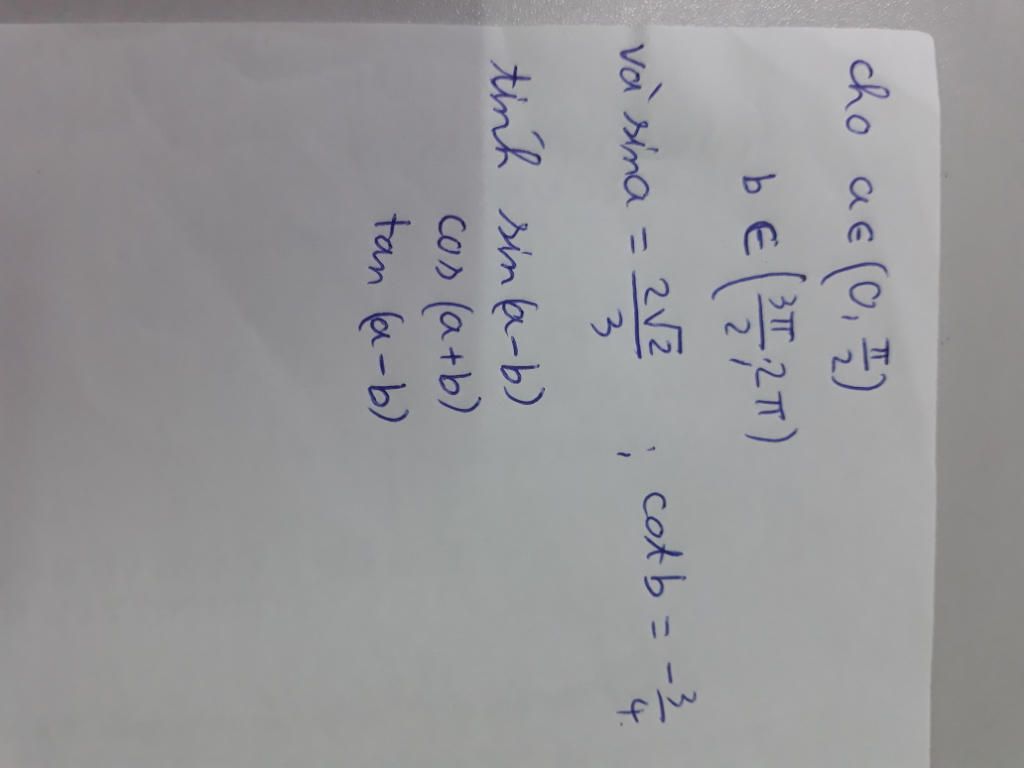 cho a ∈ (0, π/2)
b ∈ (3π/2; 2π)
và sina = 2√2/3 ; cotb = -3/4.
tính sin(a-b)
cos(a+b)
tan(a-b)